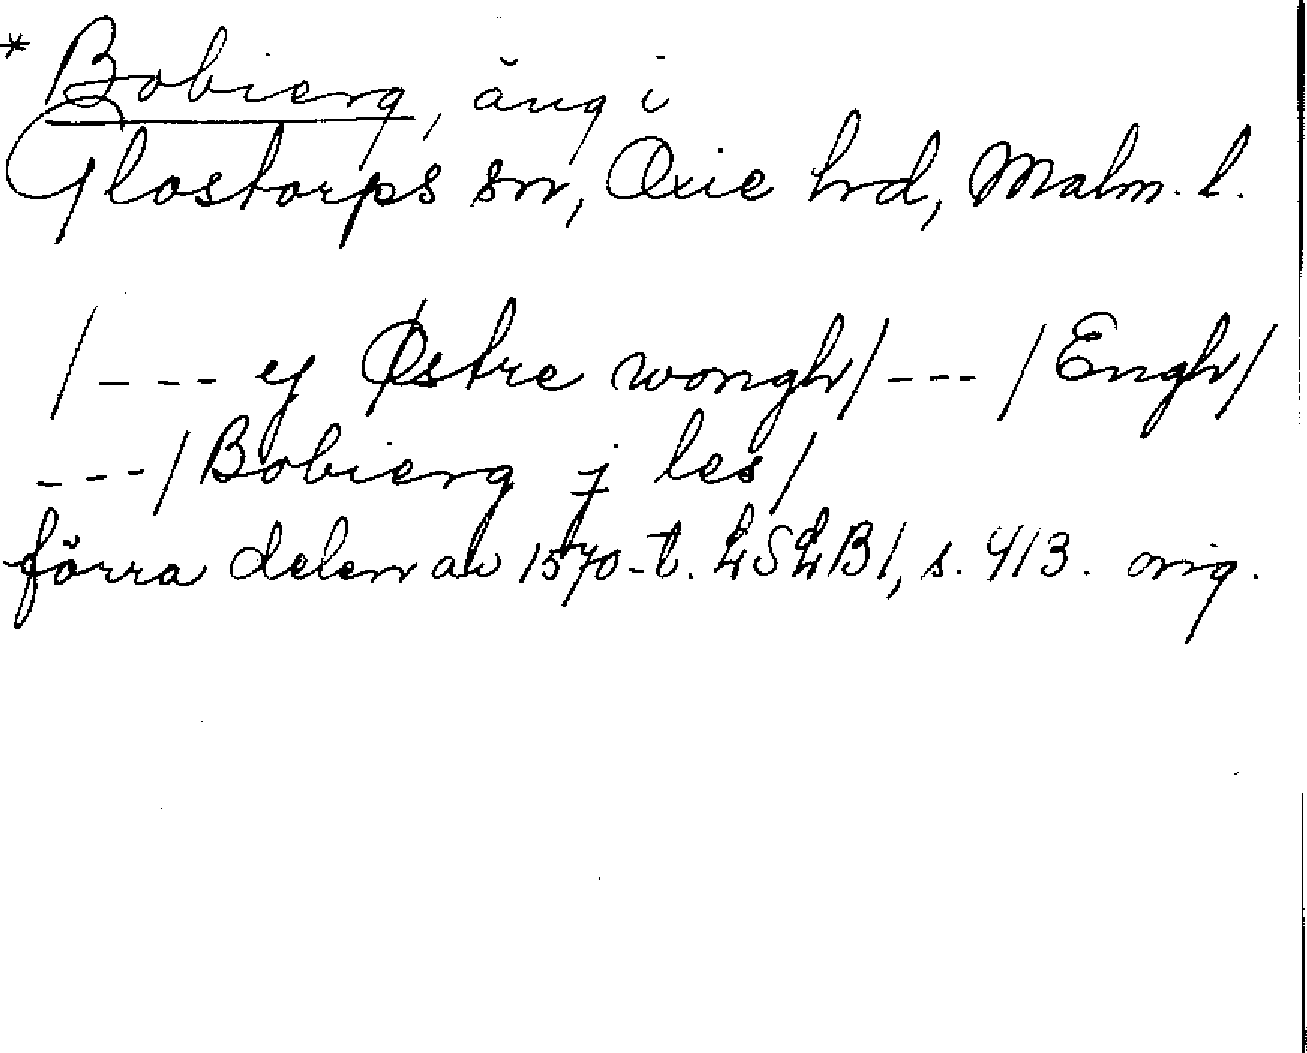 * Bobierg, äng i
Glostorps sn, Oxie hrd, Malm. l.
/--- ej Østre wongh/--- /Engh/
---/Bobierg j les/
förra delen av 1570-t. LSLB1, s. 413. orig.